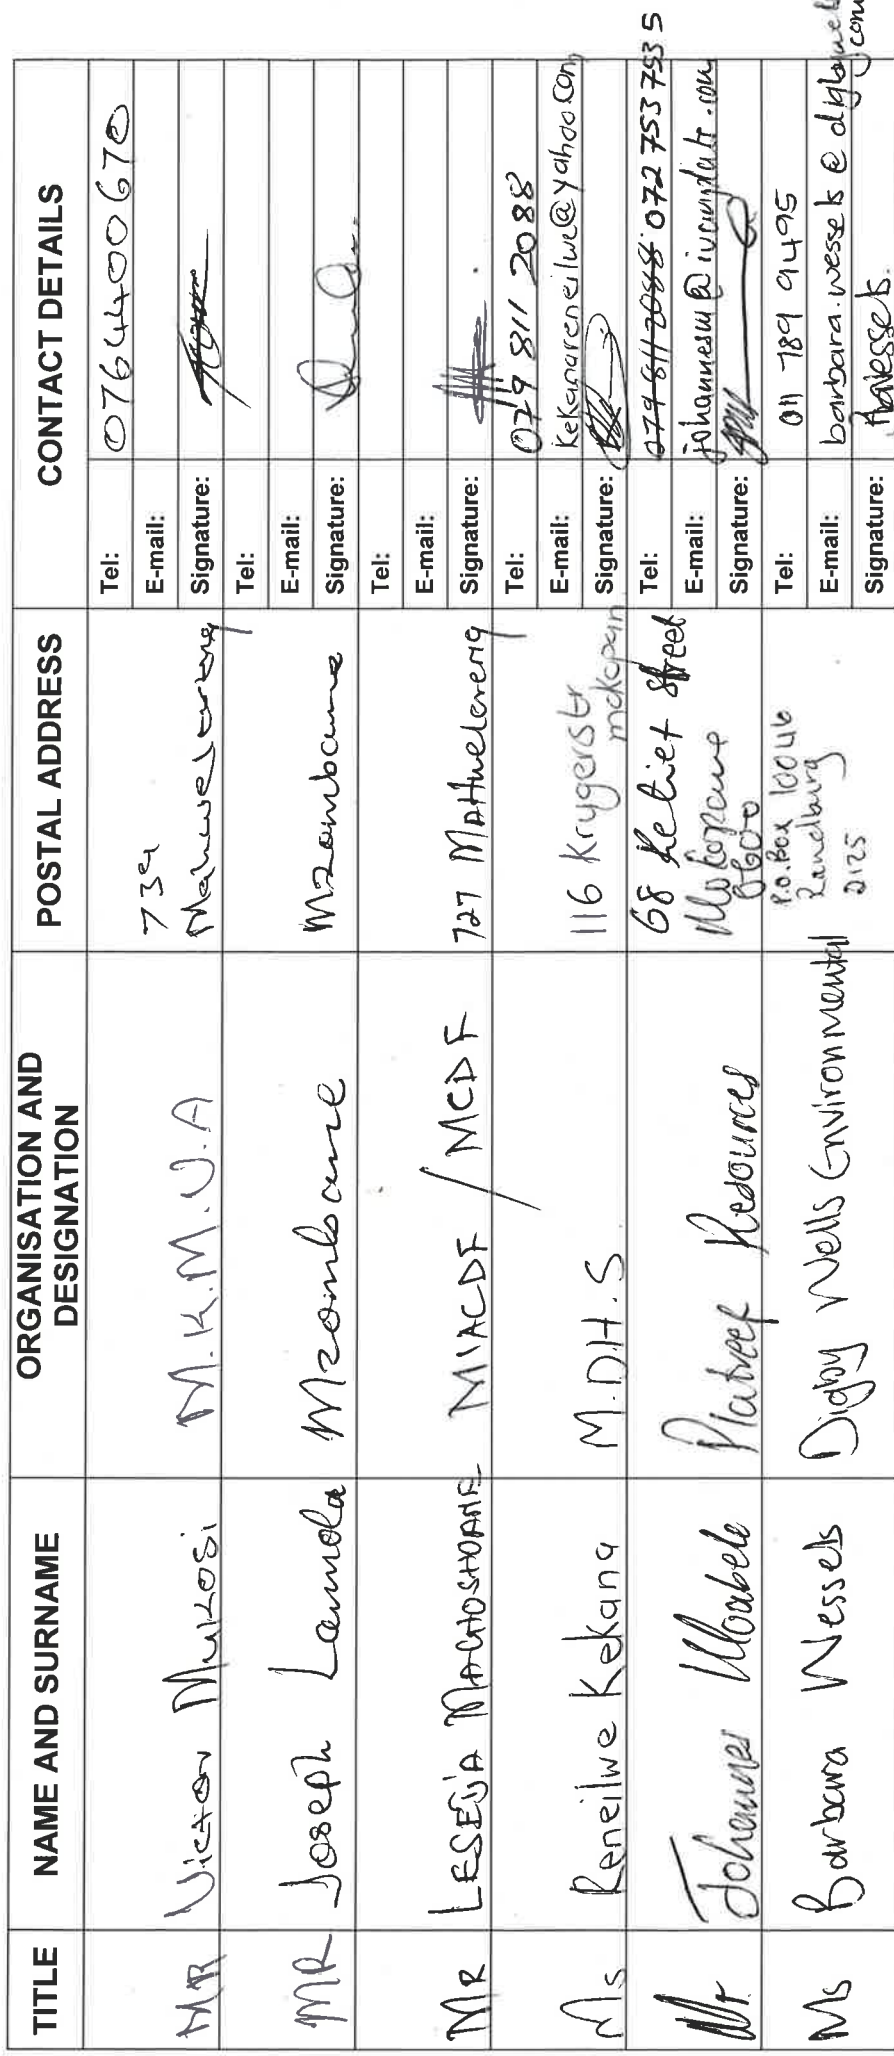 TITLE NAME AND SURNAME ORGANISATION AND DESIGNATION POSTAL ADDRESS CONTACT DETAILS
MR Victor Mukosi M.K.M.V.A 739 Tel: 0764400670
E-mail:
Signature:
MR Joseph Lamola Mzombane Mzombane Tel:
E-mail:
Signature:
MR LESEJA MAGHOSHOANE MIACDF / MCDF 727 MAHWELERENG Tel:
E-mail:
Signature:
Ms Reneilwe Kekana M.D.H.S 116 Krugerstr mokopan Tel: 079 811 2088
E-mail: Kekanareneilwe@yahoo.com
Signature:
Mr Johannes Platreef Resources 68 Retief Street Tel: 079 811 2088 072 753 7535
Mokopane E-mail:
0600 Signature:
Ms Barbara Wessels Digby Wells Environmental P.O. Box 10046 Tel: 011 789 9495
Randburg E-mail: barbara.wessels@digbywells.com
2125 Signature: